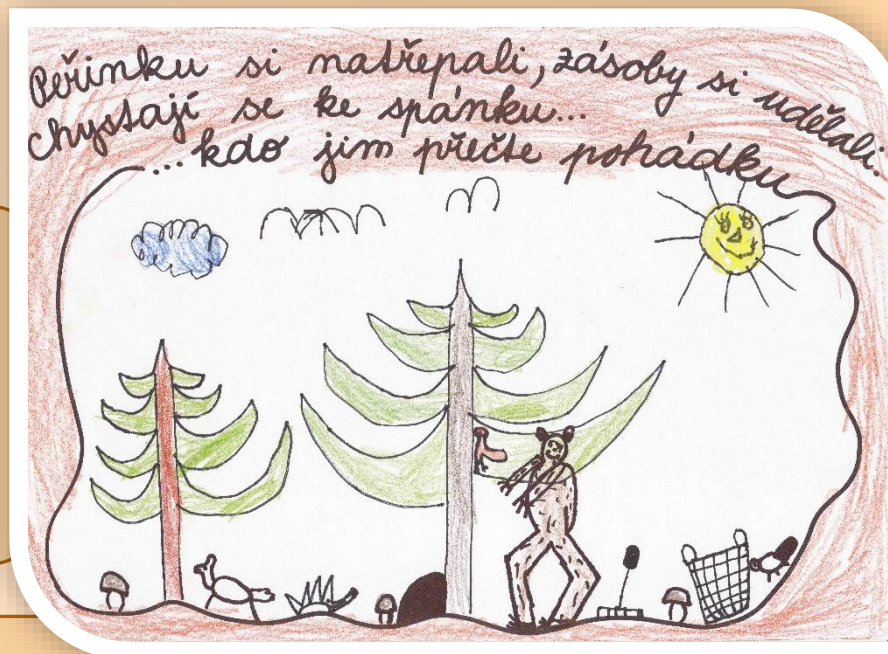 Peřinku si natřepali, zásoby si udělali.
Chystají se ke spánku...
...kdo jim přečte pohádku